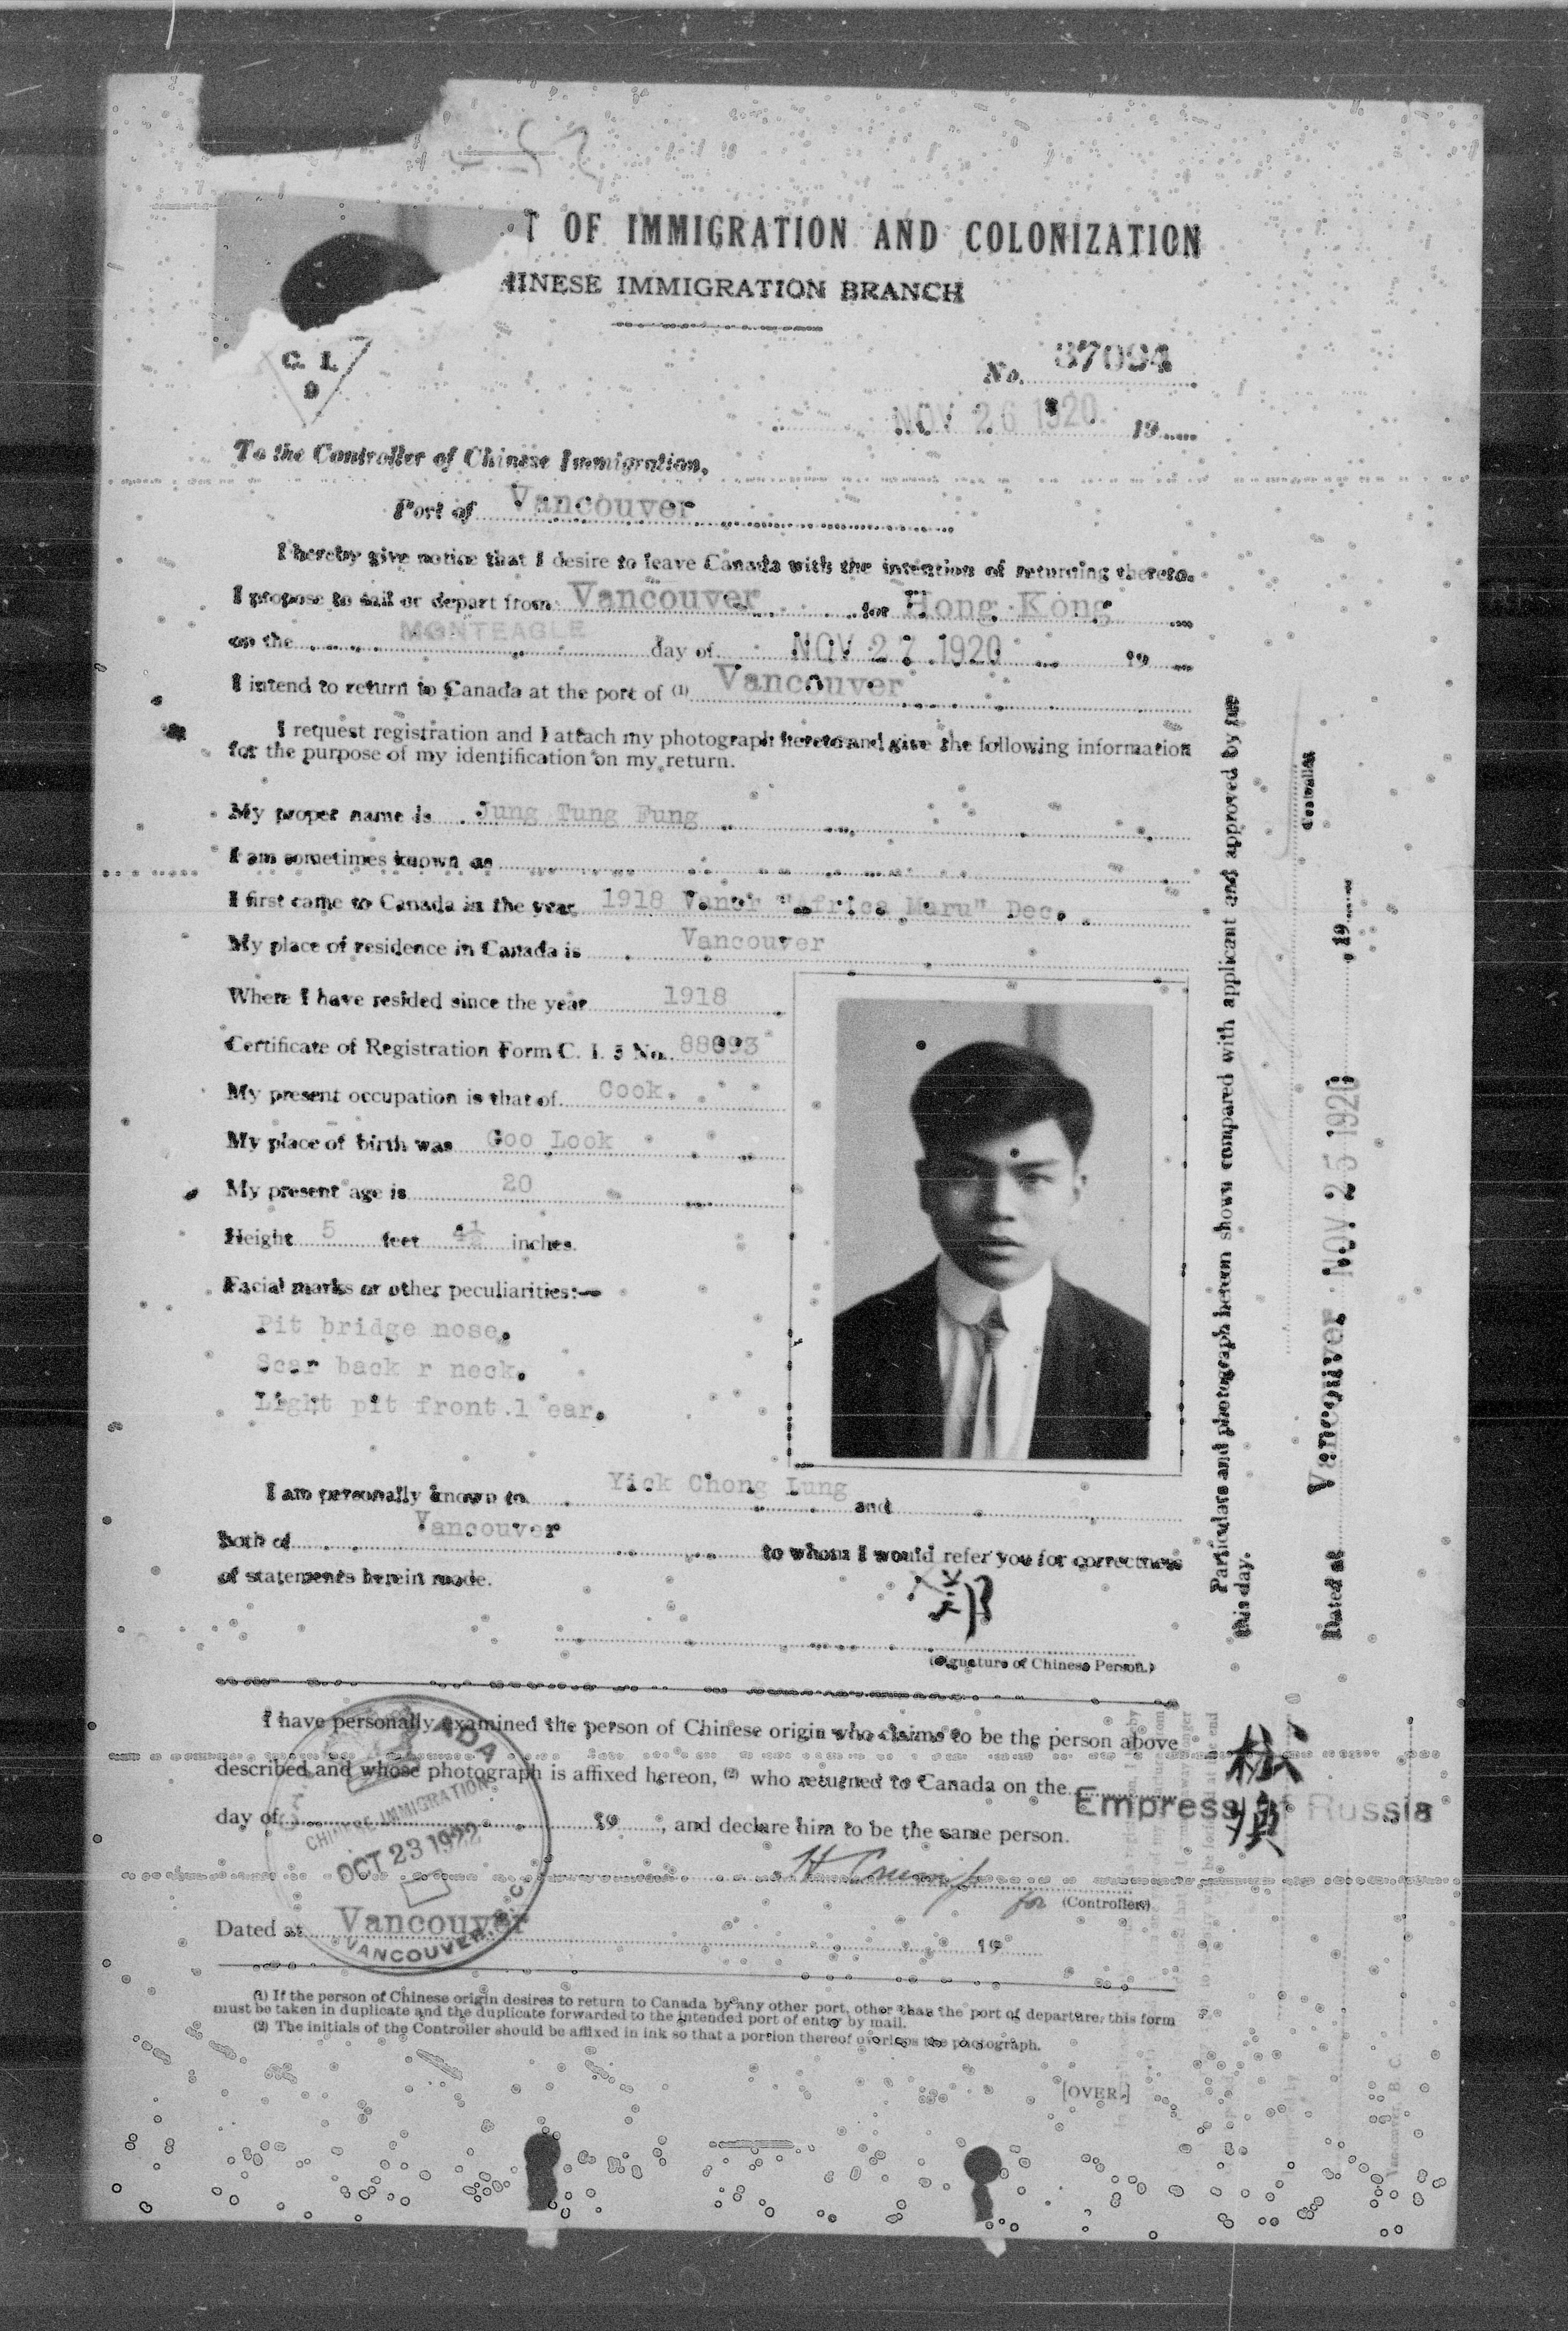 T OF IMMIGRATION AND COLONIZATION
HINESE IMMIGRATION BRANCH
C. I.
9
No. 37094
NOV 26 1920 19
To the Controller of Chinese Immigration,
Port of Vancouver
I hereby give notice that I desire to leave Canada with the intention of returning thereto.
I propose to sail or depart from Vancouver for Hong Kong
on the MONTEAGLE day of NOV 27 1920 19
I intend to return to Canada at the port of (1) Vancouver
I request registration and I attach my photograph hereto and give the following information
for the purpose of my identification on my return.
My proper name is Jung Tung Fung
I am sometimes known as
I first came to Canada in the year 1918 Vancr "Africa Maru" Dec.
My place of residence in Canada is Vancouver
Where I have resided since the year 1918
Certificate of Registration Form C. I. 5 No. 88093
My present occupation is that of Cook.
My place of birth was Goo Look
My present age is 20
Height 5 feet 4½ inches.
Facial marks or other peculiarities:—
Pit bridge nose.
Scar back r neck.
Light pit front l ear.
I am personally known to Yick Chong Lung and
both of Vancouver to whom I would refer you for correctness
of statements herein made.
(Signature of Chinese Person.)
I have personally examined the person of Chinese origin who claims to be the person above
described and whose photograph is affixed hereon, (2) who returned to Canada on the
Empress of Russia
day of 19 , and declare him to be the same person.
CANADA
CHINESE IMMIGRATION
OCT 23 1922
VANCOUVER, B.C.
for (Controller)
Dated at Vancouver 19
(1) If the person of Chinese origin desires to return to Canada by any other port, other than the port of departure, this form
must be taken in duplicate and the duplicate forwarded to the intended port of entry by mail.
(2) The initials of the Controller should be affixed in ink so that a portion thereof overlaps the photograph.
[OVER.]
Particulars and photograph hereon shown compared with applicant and approved by me
this day.
Controller
Dated at Vancouver NOV 25 1920 , 19